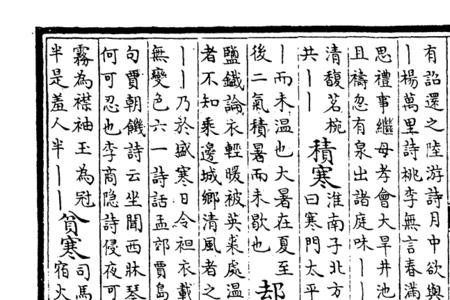 有詔還之陸游詩月中欲與
丨楊萬里詩桃李無言春滿
思禮事繼母考會大旱井池
且禱忽有泉出諸庭味丨丨
清馥茗椀
共丨丨
積寒
淮南子北方
曰寒門太平
丨而未溫也大暑在夏至
後二氣積暑而未歇也
却
鹽鐵論衣輕暖被英裘處溫
者不知乘邊城鄉清風者之
丨丨乃於盛寒日令袒衣載
無變色六一詩話孟郊賈島
句賈朝饑詩云坐聞西牀琴
何可忍也李商隱詩侵夜可
霧為襟袖玉為冠
半是羞人半丨丨
貧寒
司馬
宿火